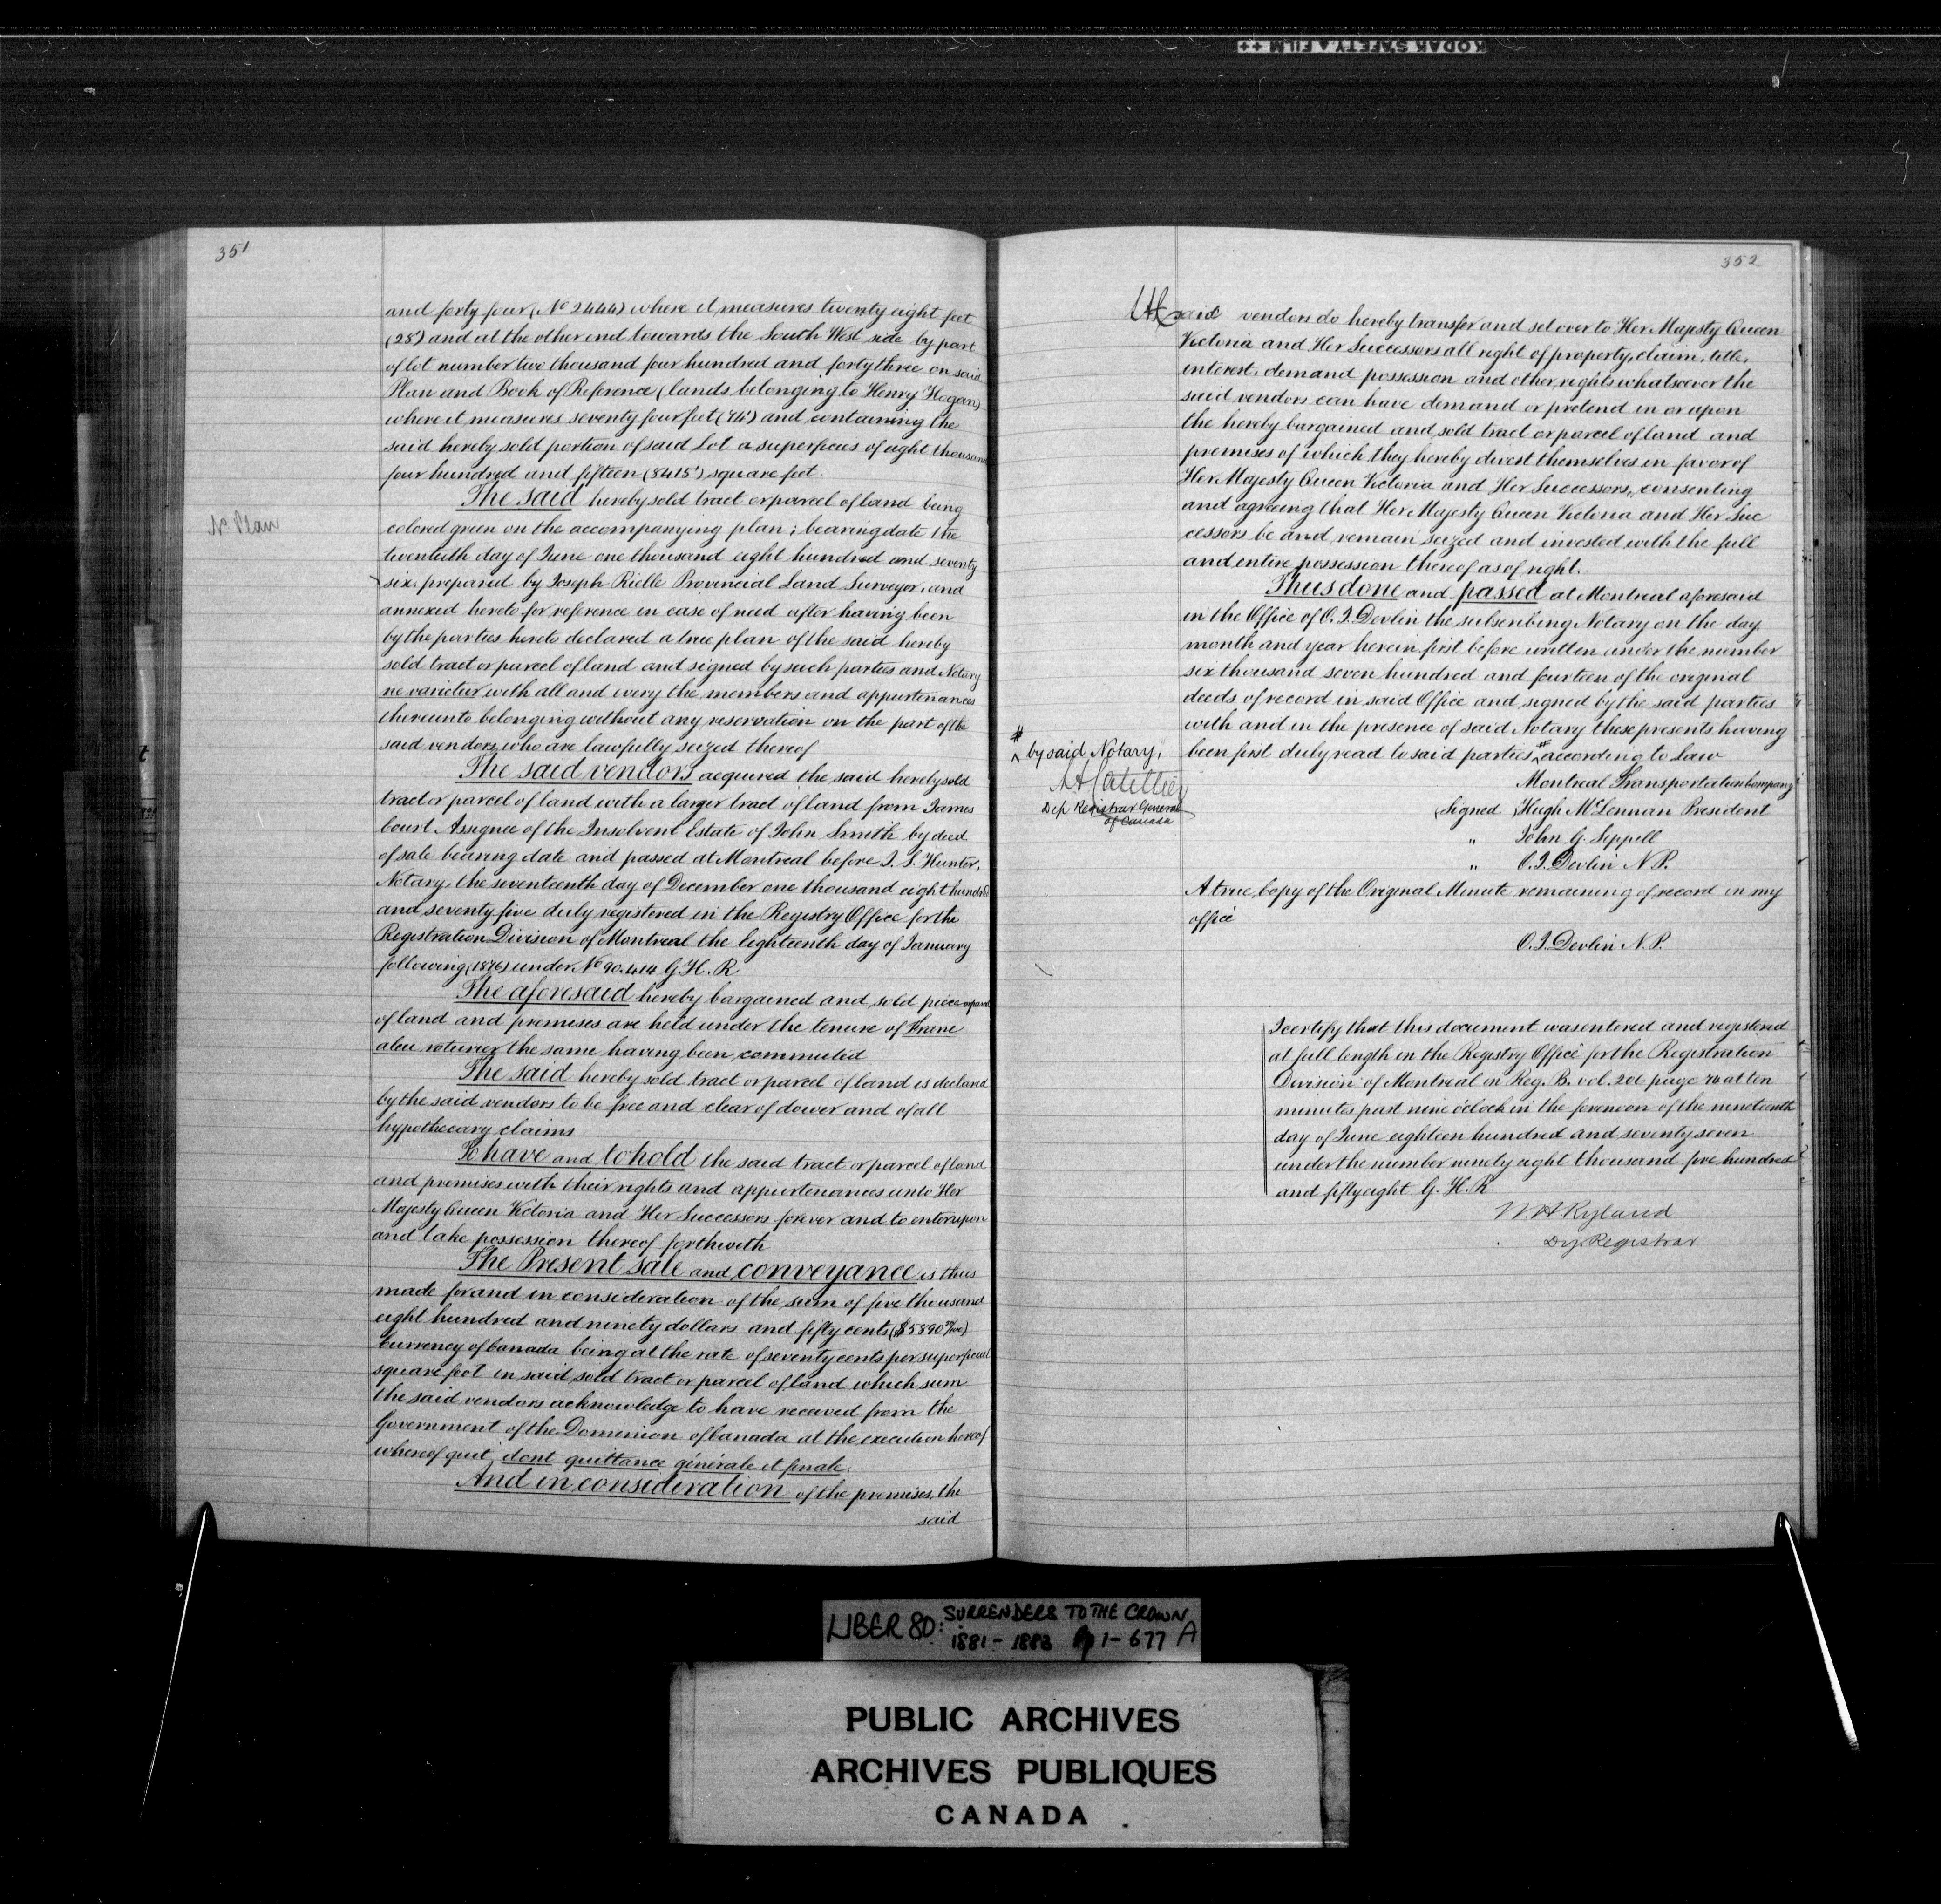 KODAK SAFETY FILM ++
351
and forty four (No 2444) where it measures twenty eight feet
(28') and at the other end towards the South West side by part
of lot number two thousand four hundred and forty three on said
Plan and Book of Reference (lands belonging to Henry Hogan)
where it measures seventy four feet (74') and containing the
said hereby sold portion of said Lot a superficies of eight thousand
four hundred and fifteen (8415') square feet.
The said hereby sold tract or parcel of land being
colored green on the accompanying plan; bearing date the
Plan
twentieth day of June one thousand eight hundred and seventy
six, prepared by Joseph Rielle Provincial Land Surveyor, and
annexed hereto for reference in case of need after having been
by the parties hereto declared a true plan of the said hereby
sold tract or parcel of land and signed by such parties and Notary
ne varietur with all and every the members and appurtenances
thereunto belonging without any reservation on the part of the
said vendors who are lawfully seized thereof
The said vendors acquired the said hereby sold
tract or parcel of land with a larger tract of land from James
Court Assignee of the Insolvent Estate of John Smith by deed
of sale bearing date and passed at Montreal before J. S. Hunter,
Notary, the seventeenth day of December one thousand eight hundred
and seventy five duly registered in the Registry Office for the
Registration Division of Montreal the Eighteenth day of January
following (1876) under No 90.414 G. H. R.
The aforesaid hereby bargained and sold piece or parcel
of land and premises are held under the tenure of Franc
aleu roturier the same having been commuted
The said hereby sold tract or parcel of land is declared
by the said vendors to be free and clear of dower and of all
hypothecary claims
To have and to hold the said tract or parcel of land
and premises with their rights and appurtenances unto Her
Majesty Queen Victoria and Her Successors forever and to enter upon
and take possession thereof forthwith
The Present sale and conveyance is thus
made for and in consideration of the sum of five thousand
eight hundred and ninety dollars and fifty cents ($5890 50/100)
Currency of Canada being at the rate of seventy cents per superficial
square foot in said sold tract or parcel of land which sum
the said vendors acknowledge to have received from the
Government of the Dominion of Canada at the execution hereof
whereof quit, dont quittance générale et finale.
And in consideration of the premises, the
said
352
said vendors do hereby transfer and set over to Her Majesty Queen
Victoria and Her Successors all right of property, claim, title,
interest, demand possession and other rights whatsoever the
said vendors can have demand or pretend in or upon
the hereby bargained and sold tract or parcel of land and
premises of which they hereby divest themselves in favor of
Her Majesty Queen Victoria and Her Successors, consenting
and agreeing that Her Majesty Queen Victoria and Her Suc
cessors be and remain seized and invested with the full
and entire possession thereof as of right.
Thus done and passed at Montreal aforesaid
in the Office of O. J. Devlin the subscribing Notary on the day,
month and year herein first before written under the number
six thousand seven hundred and fourteen of the original
deeds of record in said Office and signed by the said parties
with and in the presence of said Notary these presents having
been first duly read to said parties # according to Law
# by said Notary,
Catellier
Dep. Registrar General
of Canada
Montreal Transportation Company
(Signed) Hugh McLennan President
" John G. Sippell
" O. J. Devlin N. P.
A true Copy of the Original Minute remaining of record in my
office
O. J. Devlin N. P.
I certify that this document was entered and registered
at full length in the Registry Office for the Registration
Division of Montreal in Reg. B. vol. 201 page 76 at ten
minutes past nine o'clock in the forenoon of the nineteenth
day of June eighteen hundred and seventy seven
under the number ninety eight thousand five hundred
and fifty eight G. H. R.
W. H. Ryland
Dy. Registrar
LIBER 80: SURRENDERS TO THE CROWN
1881 - 1883 pp 1-677 A
PUBLIC ARCHIVES
ARCHIVES PUBLIQUES
CANADA